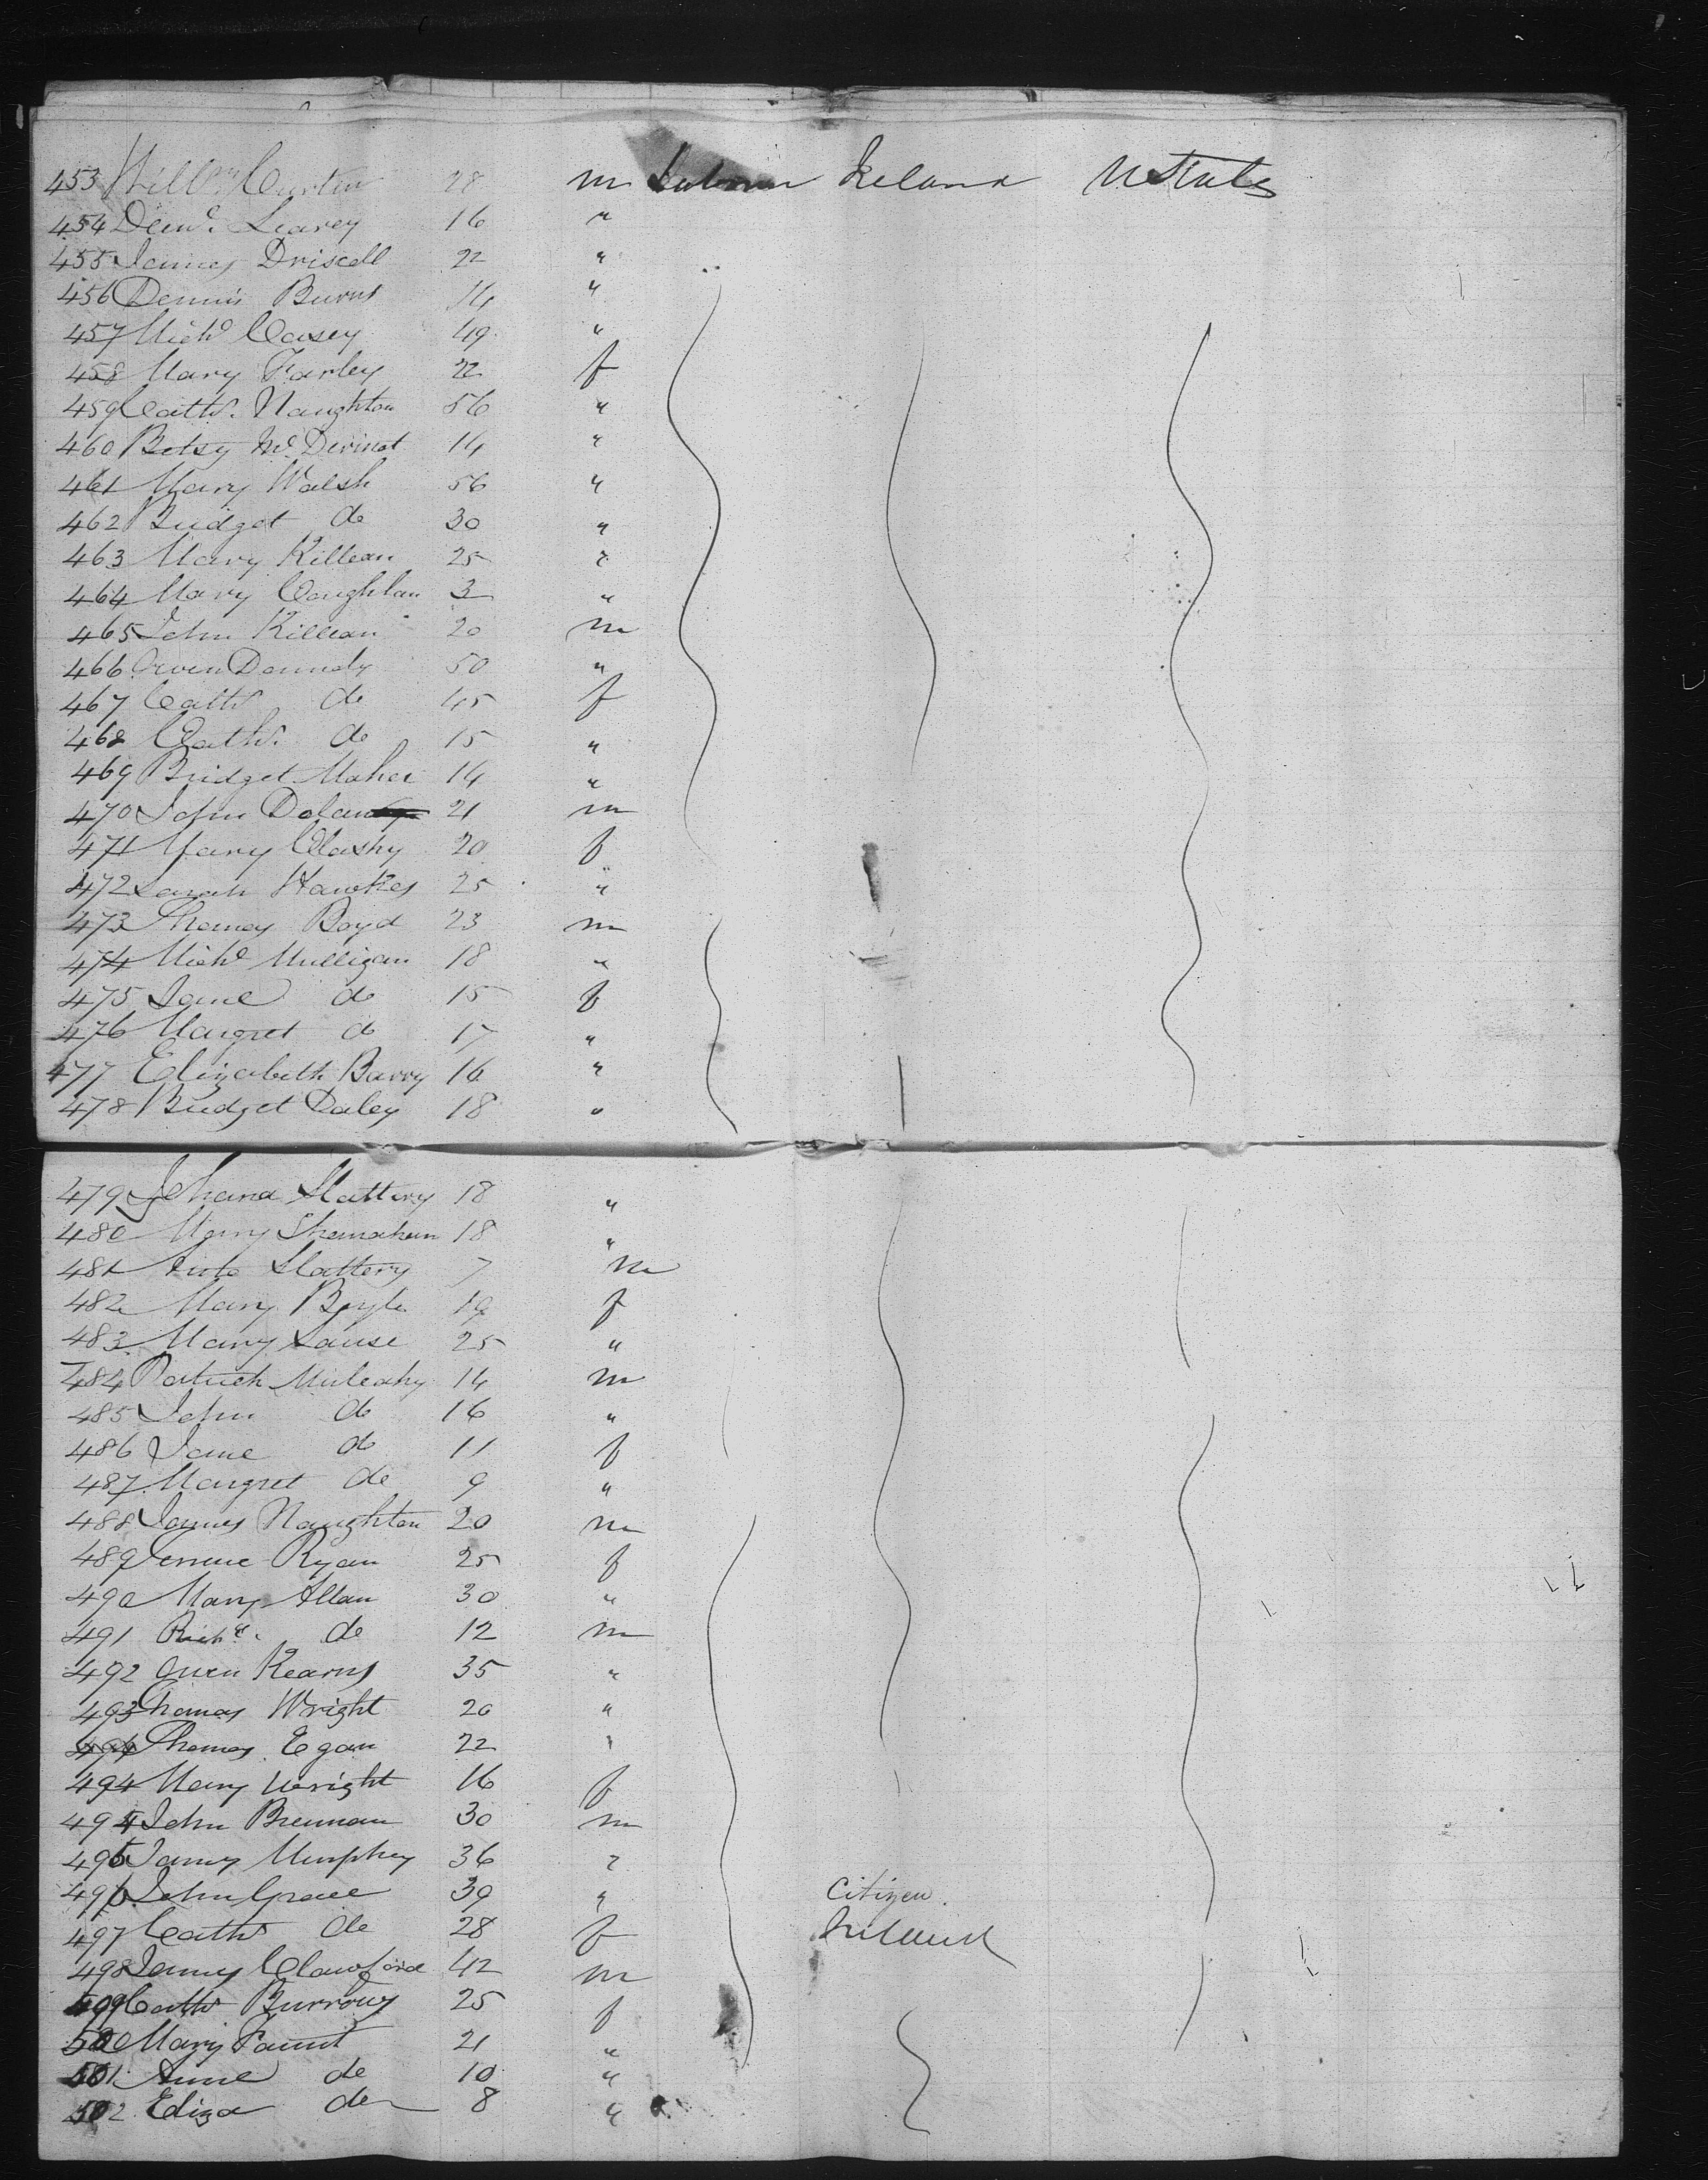 453 Willm Curtin 28 m Laborer Ireland U States
454 Denis. Learey 16 "
455 James Driscoll 22 "
456 Dennis Burns 14 "
457 Michl Casey 49 "
458 Mary Farley 22 f
459 Cathr. Naughton 56 "
460 Betsy McDermot 14 "
461 Mary Walsh 56 "
462 Bridget do 30 "
463 Mary Killean 25 "
464 Mary Coughlan 3 "
465 John Killean 20 m
466 Owen Dennedy 50 "
467 Cathr do 45 f
468 Cathr. do 15 "
469 Bridget Maher 14 "
470 John Dolan 21 m
471 Mary Clashy 20 f
472 Sarah Hawkes 25 "
473 Thomas Boyd 23 m
474 Michl Mulligan 18 "
475 Jane do 15 f
476 Margret do 17 "
477 Elizabeth Barry 16 "
478 Bridget Daley 18 "
479 Johana Slattery 18 "
480 Mary Shanahan 18 "
481 Slattery 7 m
482 Mary Boyle 19 f
483 Mary Lause 25 "
484 Patrick Mulcahy 14 m
485 John do 16 "
486 Jane do 11 f
487 Margret do 9 "
488 James Naughton 20 m
489 Ryan 25 f
490 Mary Allan 30 "
491 Richd. do 12 m
492 Owen Kearns 35 "
493 Thomas Wright 20 "
494 Thomas Egan 22 "
494 Mary Wright 16 f
494 John Brennan 30 m
495 James Murphy 36 "
496 John Grace 39 " Citizen
497 Cathr do 28 f Ireland
498 James Clawford 42 m
499 Cathr Burrows 25 f
500 Mary Faunt 21 "
501 Anne do 10 "
502 Eliza do 8 "